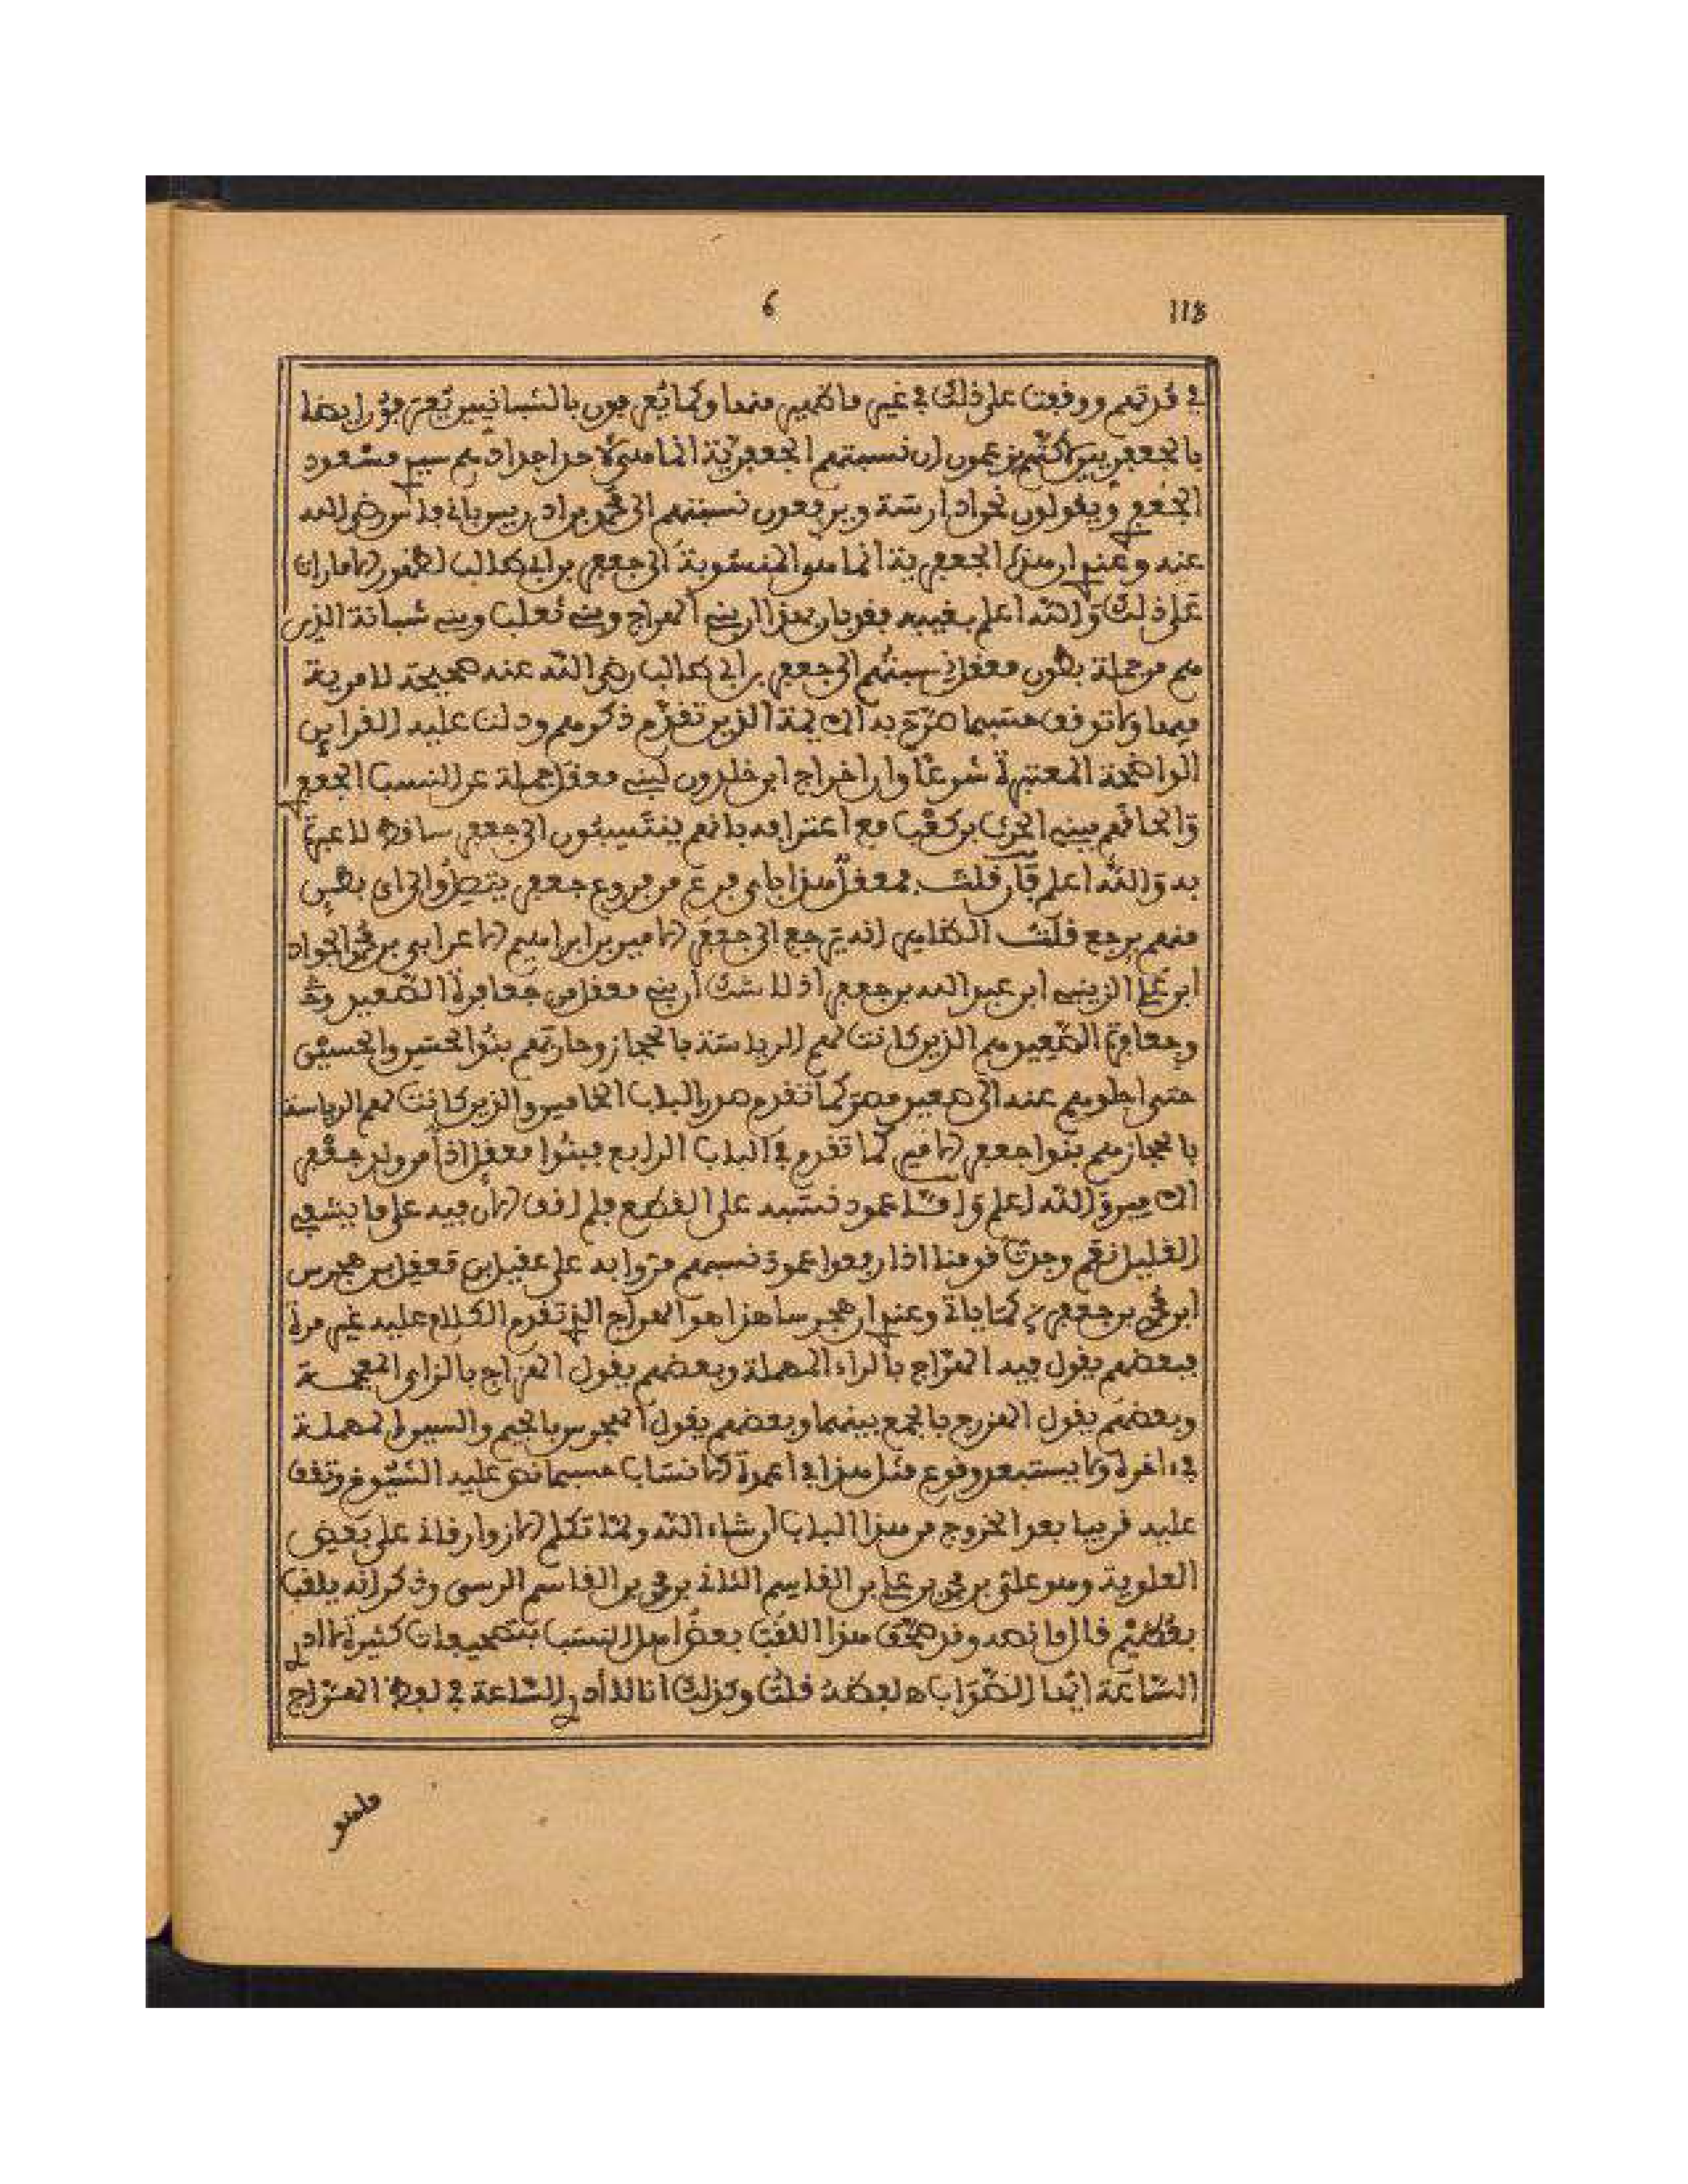 6
118
في قريتهم ووقفت على ذلك في غير ما ظهير منها وكما يعرفون بالشبانيين يعرفون أيضا
بالجعفريين أكثرهم يزعمون ان نسبتهم الجعفرية انما هي لأحد اجدادهم سيد مسعود
الجعفي ويقولون نحو اد ارشة ويرفعون نسبتهم الى محمد بن ادريس باني فاس رضي الله
عنه وعندي ان هذه الجعفرية انما هي المنسوبة الى جعفر بن ابي طالب لظهور الامارات
على ذلك والله اعلم بغيبه فقد بان بهذا ان بني المعراج وبني ثعلب وبني شبانة الذين
هم من جملة بطون معقل نسبتهم الى جعفر بن ابي طالب رضي الله عنه صحيحة لا مرية
فيها ولا توقف حسبما صرح به الائمة الذين تقدم ذكرهم ودلت عليه القراين
الواضحة المعتبرة شرعا وان اخراج ابن خلدون لبني معقل جملة عن النسب الجعفي
والحاقهم ببني الحرث بن كعب مع اعترافه بانهم ينتسبون الى جعفر ساقط لا عبرة
به والله اعلم فان قلت فمعقل هذا باي فرع من فروع جعفر يتصل والى اي بطن
منهم يرجع قلت الظاهر انه يرجع الى جعفر الامير بن ابراهيم الاعرابي بن محمد الجواد
ابن علي الزينبي ابن عبد الله بن جعفر اذ لا شك ان بني معقل من جعافرة الصعيد
وجعافرة الصعيد هم الذين كانت لهم الرياسة بالحجاز وحاربهم بنوا الحسن والحسين
حتى اجلوهم عنه الى صعيد مصر كما تقدم صدر الباب الخامس والذين كانت لهم الرياسة
بالحجاز هم بنوا جعفر الامير كما تقدم في الباب الرابع فبنوا معقل اذا من ولد جعفر
الامير والله اعلم واما عمود نسبه على القطع فلم اقف الان فيه على ما يشفي
الغليل نعم وجدت قومنا اذا رفعوا عمود نسبهم مروا به على عقيل بن معقل بن هجرس
ابن محمد بن جعفر وعندي ان هجرسا هذا هو المعراج الذي تقدم الكلام عليه غير مرة
فبعضهم يقول فيه المعراج بالراء المهملة وبعضهم يقول المعزاج بالزاي المعجمة
وبعضهم يقول العزرج بالجمع بينهما وبعضهم يقول الهجرس بالجيم والسين المهملة
في اخره ولا يستبعد وقوع مثل هذا في اعمدة الانساب حسبما نص عليه الشيوخ وتقف
عليه قريبا بعد الخروج من هذا الباب ان شاء الله ولما تكلم الازوارقاني على بعض
العلوية وهو علي بن محمد بن علي بن القاسم الثاني بن محمد بن القاسم الرسي وذكر انه يلقب
قال ما نصه وقد صحف هذا اللقب بعض اهل النسب بتصحيفات كثيرة لا ادري
الساعة ايها الصواب ه لفظه قلت وكذلك انا لا ادري الساعة في لفظ المعراج
ما هو